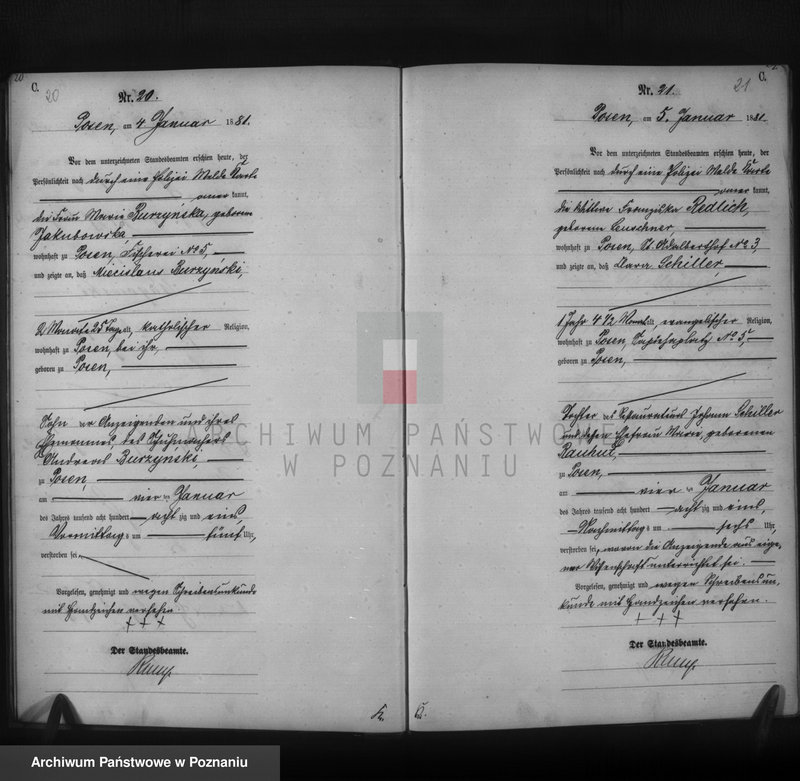 20.
C.
20
Nr. 20.
Posen, am 4 Januar 1881.
Vor dem unterzeichneten Standesbeamten erschien heute, der
Persönlichkeit nach durch eine Polizei Melde Karte
kannt,
die Frau Marie Burzyńska, geborene
Jakubowska
wohnhaft zu Posen, Fischerei No 5,
und zeigte an, daß Miecislaus Burzyński,
2 Monate 25 Tage alt, katholischer Religion,
wohnhaft zu Posen, bei ihr,
geboren zu Posen,
Sohn der Anzeigenden und ihres
Ehemannes, des Schuhmachers
Andreas Burzyński,
zu Posen,
am vier ten Januar
des Jahres tausend acht hundert acht zig und eins,
Vormittags um fünf Uhr
verstorben sei,
Vorgelesen, genehmigt und wegen Schreibensunkunde
mit Handzeichen versehen.
+ + +
Der Standesbeamte.
K.
C.
21
Nr. 21.
Posen, am 5. Januar 1881.
Vor dem unterzeichneten Standesbeamten erschien heute, der
Persönlichkeit nach durch eine Polizei Melde Karte
kannt,
die Wittwe Franziska Redlich,
geborene Leuschner,
wohnhaft zu Posen, St. Adalberthof No 3,
und zeigte an, daß Clara Schiller,
1 Jahr 4 1/2 Monat alt, evangelischer Religion,
wohnhaft zu Posen, Sapiehaplatz No 5,
geboren zu Posen,
Tochter des Restaurateurs Johann Schiller
und dessen Ehefrau Marie, geborenen
zu Posen,
am vier ten Januar
des Jahres tausend acht hundert acht zig und eins,
Nachmittags um sechs Uhr
verstorben sei, wovon die Anzeigende aus eige-
ner Wissenschaft unterrichtet sei.
Vorgelesen, genehmigt und wegen Schreibensun-
kunde mit Handzeichen versehen.
+ + +
Der Standesbeamte.
ARCHIWUM PAŃSTWOWE
W POZNANIU
Archiwum Państwowe w Poznaniu